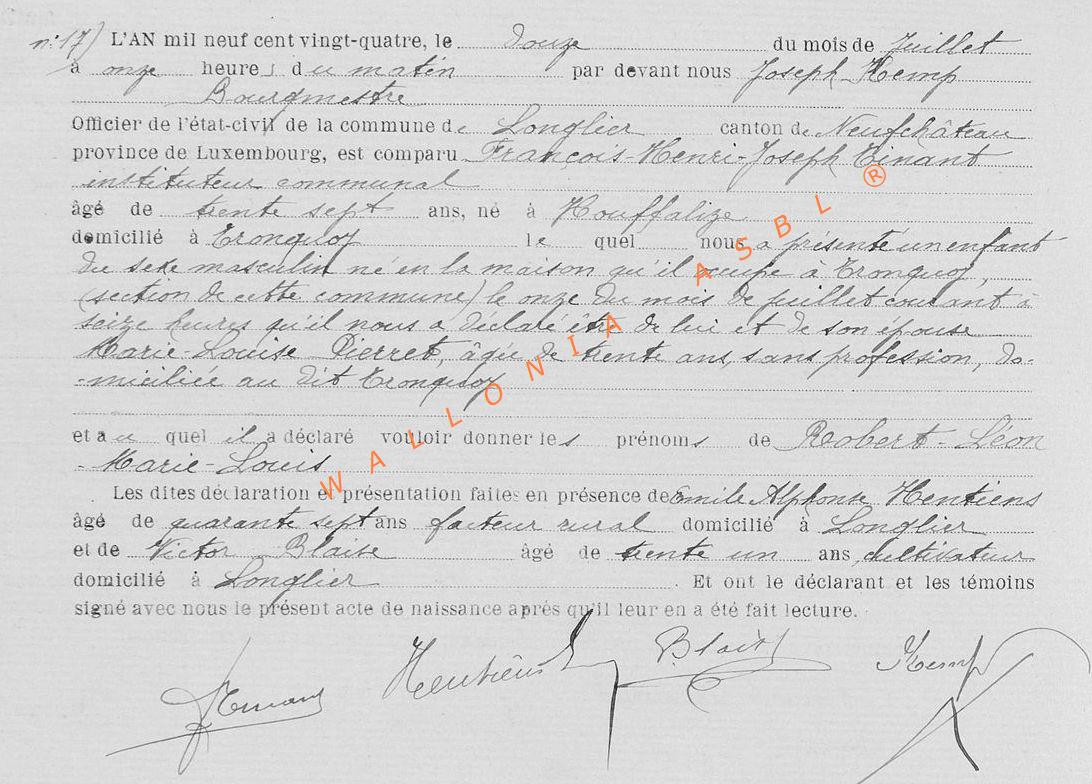 n° 17) L'AN mil neuf cent vingt-quatre, le douze du mois de Juillet
à onze heures du matin par devant nous Joseph Hemp
Bourgmestre
Officier de l'état-civil de la commune de Longlier canton de Neufchâteau
province de Luxembourg, est comparu François-Henri-Joseph Tinant
instituteur communal
âgé de trente sept ans, né à Houffalize
domicilié à Tronquoy lequel nous a présenté un enfant
du sexe masculin né en la maison qu'il occupe à Tronquoy,
(section de cette commune) le onze du mois de juillet courant à
seize heures qu'il nous a déclaré être de lui et de son épouse
Marie-Louise Pierret, âgée de trente ans, sans profession, do-
-miciliée au dit Tronquoy
et auquel il a déclaré vouloir donner les prénoms de Robert-Léon
-Marie-Louis
Les dites déclaration et présentation faites en présence de Emile Alphonse Hentiens
âgé de quarante sept ans facteur rural domicilié à Longlier
et de Victor Blaise âgé de trente un ans, cultivateur
domicilié à Longlier. Et ont le déclarant et les témoins
signé avec nous le présent acte de naissance après qu'il leur en a été fait lecture.
Hentiens Blaise Hemp
WALLONIA ASBL ®